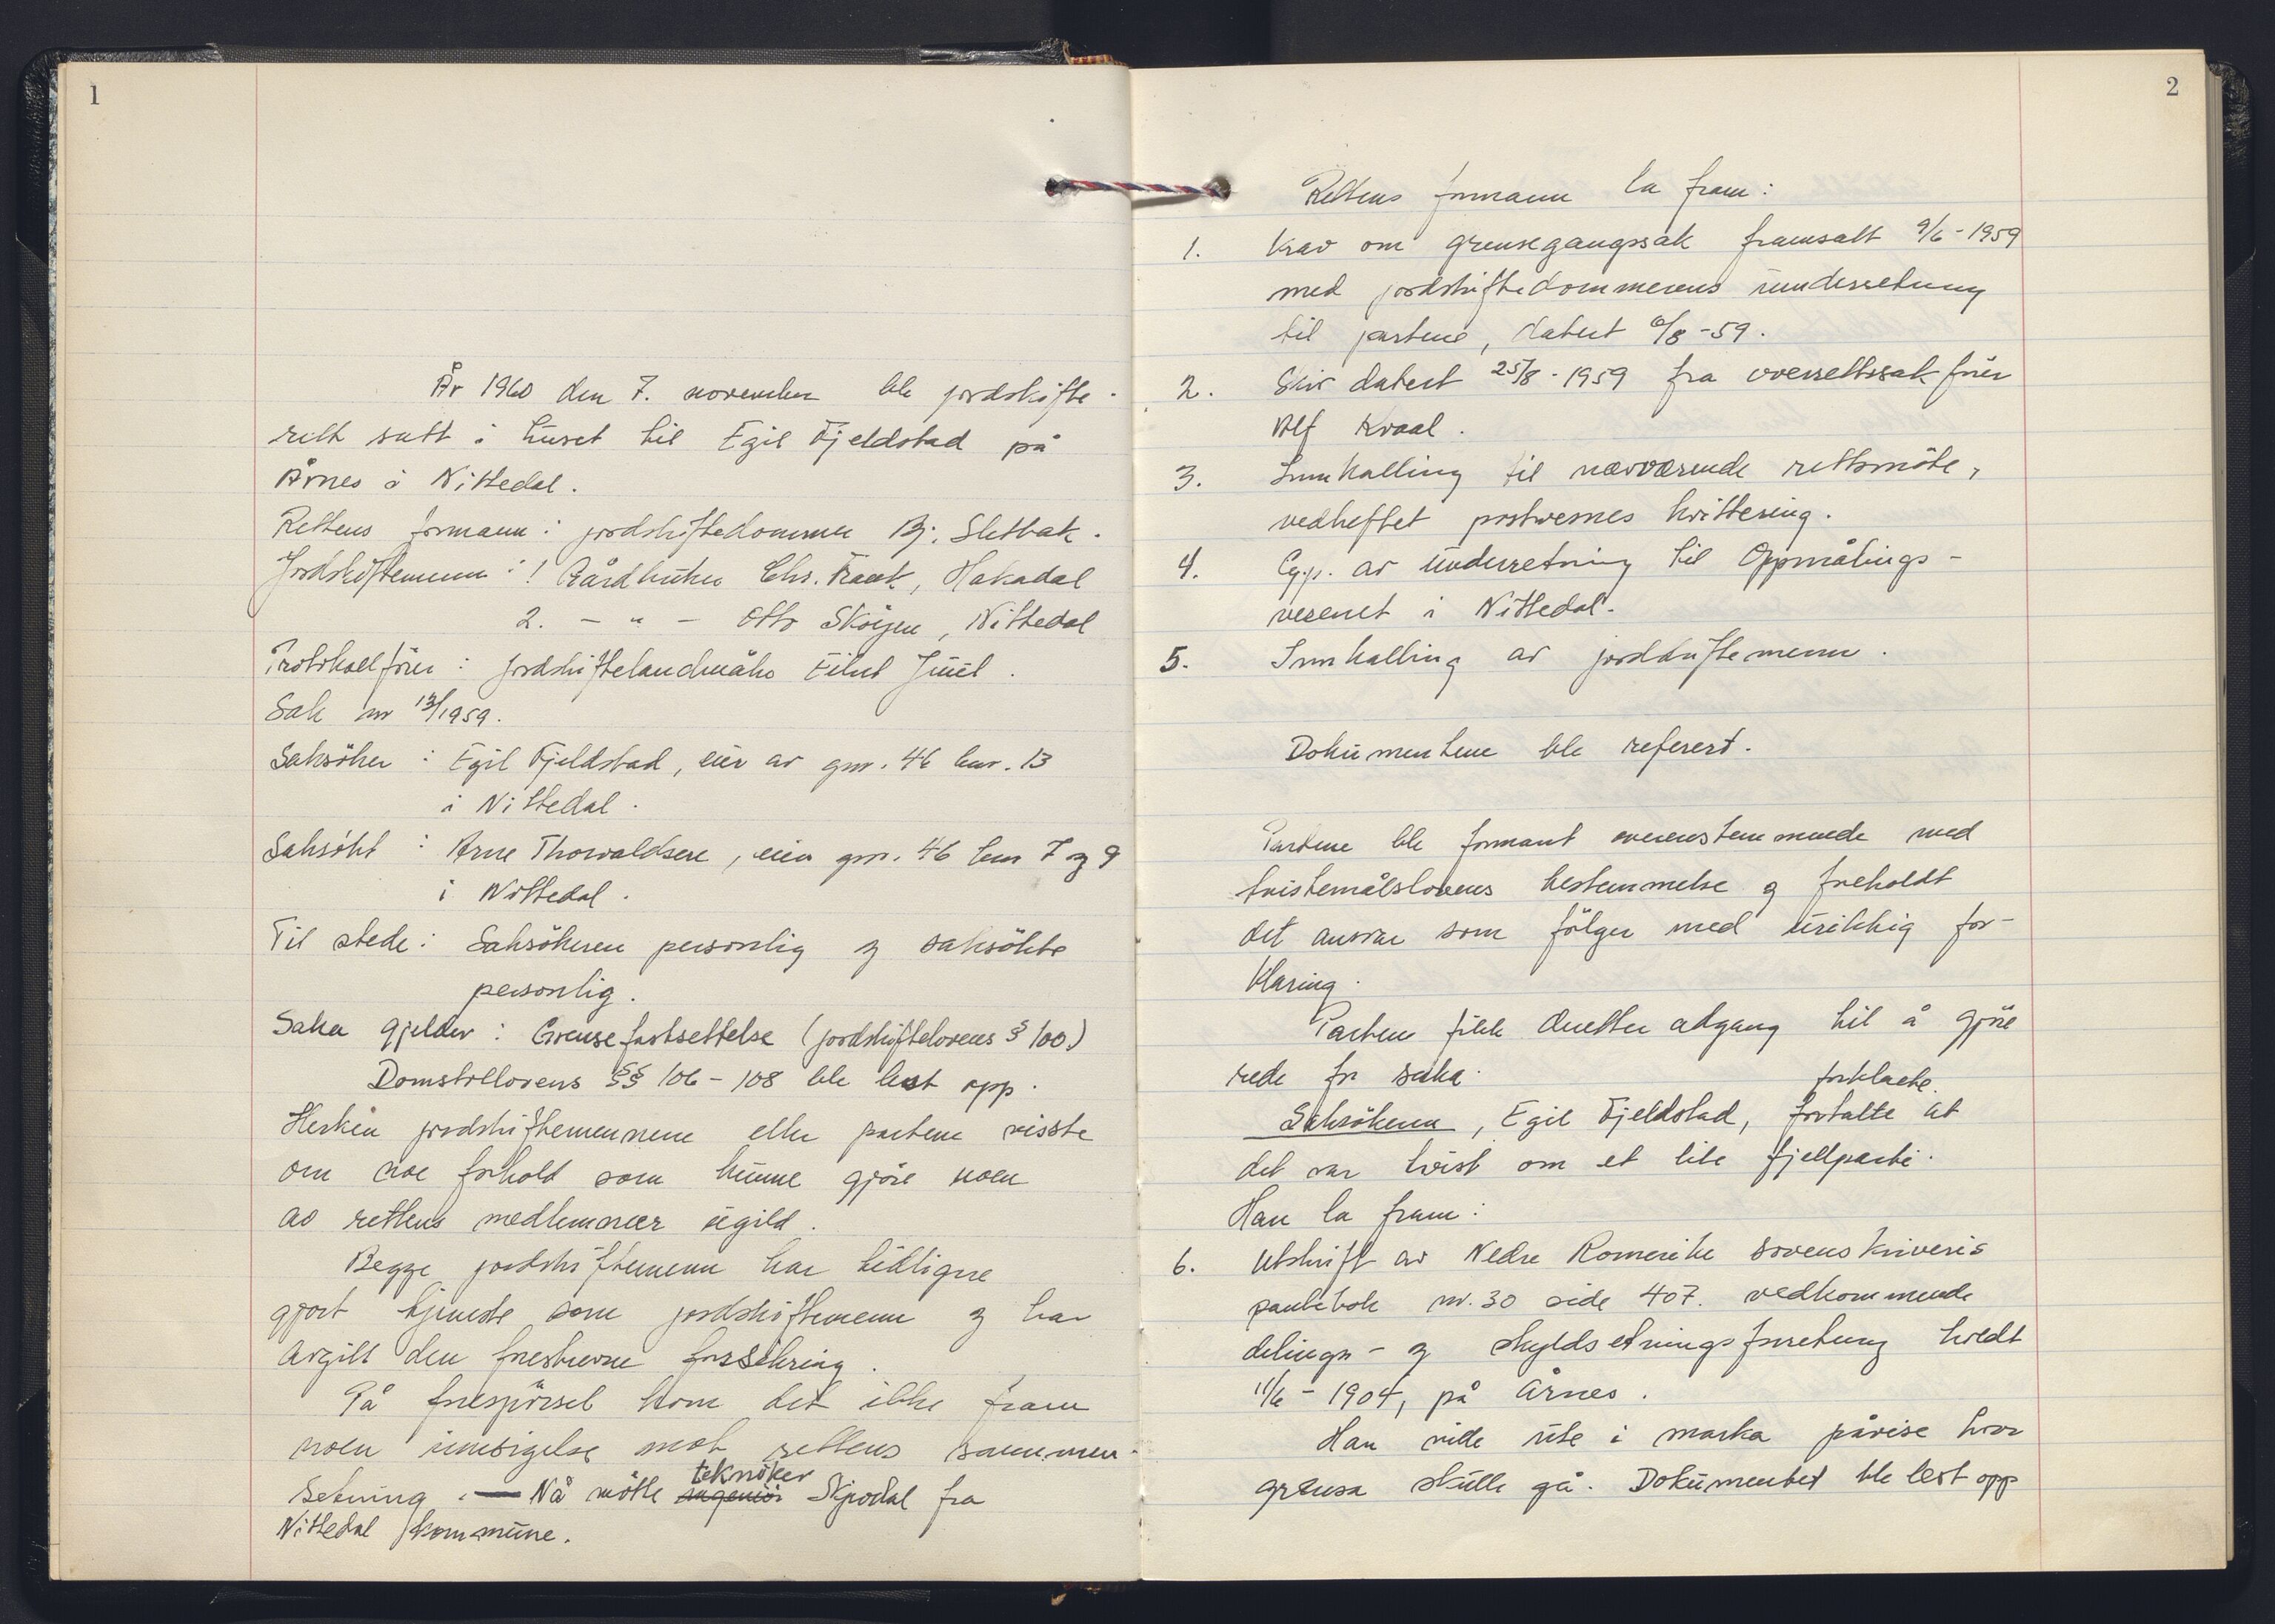 1
År 1960 den 7. november ble jordskifte-
rett satt i huset til Egil Fjeldstad på
Årnes i Nittedal.
Rettens formann: jordskiftedommer Bj. Sletbak.
Jordskiftemenn: 1 Gårdbruker Chr. Haak, Hakadal
2. - " - Otto Skøyen, Nittedal
Protokollfører: jordskiftelandmåler Eilert Juul.
Sak nr 13/1959.
Saksøker: Egil Fjeldstad, eier av gnr. 46 bnr. 13
i Nittedal.
Saksøkt: Arne Thorvaldsen, eier gnr. 46 bnr 7 og 9
i Nittedal.
Til stede: Saksøkeren personlig og saksøkte
personlig.
Saka gjelder: Grensefastsettelse (jordskiftelovens § 100)
Domstollovens §§ 106-108 ble lest opp.
Hverken jordskiftemennene eller partene visste
om noe forhold som kunne gjøre noen
av rettens medlemmer ugild.
Begge jordskiftemenn har tidligere
gjort tjeneste som jordskiftemenn og har
avgitt den foreskrevne forsikring.
På forespørsel kom det ikke fram
noen innsigelse mot rettens sammen-
setning. — Nå møtte ingeniør tekniker Skjodal fra
Nittedal kommune.
2
Rettens formann la fram:
1. Krav om grensegangssak framsatt 9/6-1959
med jordskiftedommerens underretning
til partene, datert 6/8-59.
2. Skiv datert 25/8-1959 fra overrettssakfører
Alf Kvaal.
3. Innkalling til nærværende rettsmøte,
vedheftet postvesnes kvittering.
4. Gjp. av underretning til Oppmålings-
vesenet i Nittedal.
5. Innkalling av jordskiftemenn.
Dokumentene ble referert.
Partene ble formant overensstemmende med
tvistemålslovens bestemmelse og foreholdt
det ansvar som følger med uriktig for-
klaring.
Partene fikk deretter adgang til å gjøre
rede for saka.
Saksøkeren, Egil Fjeldstad, fortalte forklarte at
det var tvist om et lite fjellparti.
Han la fram:
6. Utskrift av Nedre Romerike sorenskriveris
pantebok nr. 30 side 407. vedkommende
delings- og skyldsetningsforretning holdt
11/6-1904, på Årnes.
Han ville ute i marka påvise hvor
grensa skulle gå. Dokumentet ble lest opp